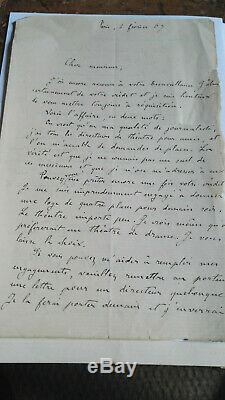 Paris, 2 février 87
Cher monsieur,
J'ai encore recours à votre bienveillance. J'abuse
certainement de votre crédit et je suis honteux
de vous mettre toujours à réquisition.
Voici l'affaire, en deux mots :
On croit qu'en ma qualité de journaliste,
j'ai tous les directeurs de théâtre pour amis, et
l'on m'accable de demandes de places. La
vérité est que je ne connais pas un seul de
ces messieurs et que je n'ose m'adresser à eux.
Pouvez-vous prêter encore une fois votre crédit
Je me suis imprudemment engagé à donner
une loge de quatre places pour demain soir.
Le théâtre importe peu. Je crois même qu'on
préfèrerait un théâtre de drame. Je vous
laisse le choix.
Si vous pouvez m'aider à remplir mes
engagements, veuillez remettre au porteur
une lettre pour un directeur quelconque
Je la ferai porter demain et j'enverrai